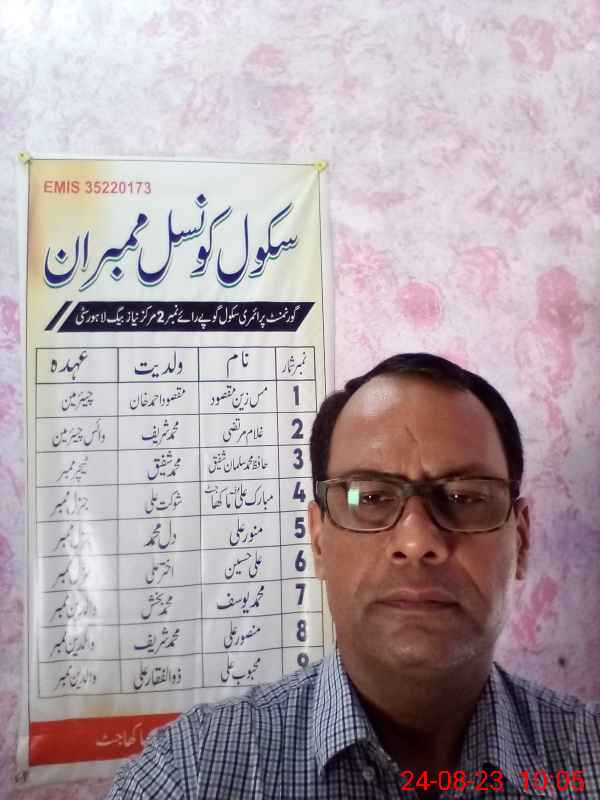 EMIS 35220173
سکول کونسل ممبران
گورنمنٹ پرائمری سکول گوپے رائے نمبر 2 مرکز نیاز بیگ لاہور سٹی
نمبر شمار نام ولدیت عہدہ
1 مس زین مقصود مقصود احمد خان چیئرمین
2 غلام مرتضی محمد شریف وائس چیئرمین
3 حافظ محمد سلمان شفیق محمد شفیق ٹیچر ممبر
4 مبارک علی شوکت علی جنرل ممبر
5 منور علی دل محمد جنرل ممبر
6 علی حسین اختر علی جنرل ممبر
7 محمد یوسف محمد بخش والدین ممبر
8 منصور علی محمد شریف والدین ممبر
9 محبوب علی ذوالفقار علی والدین ممبر
24-08-23 10:05